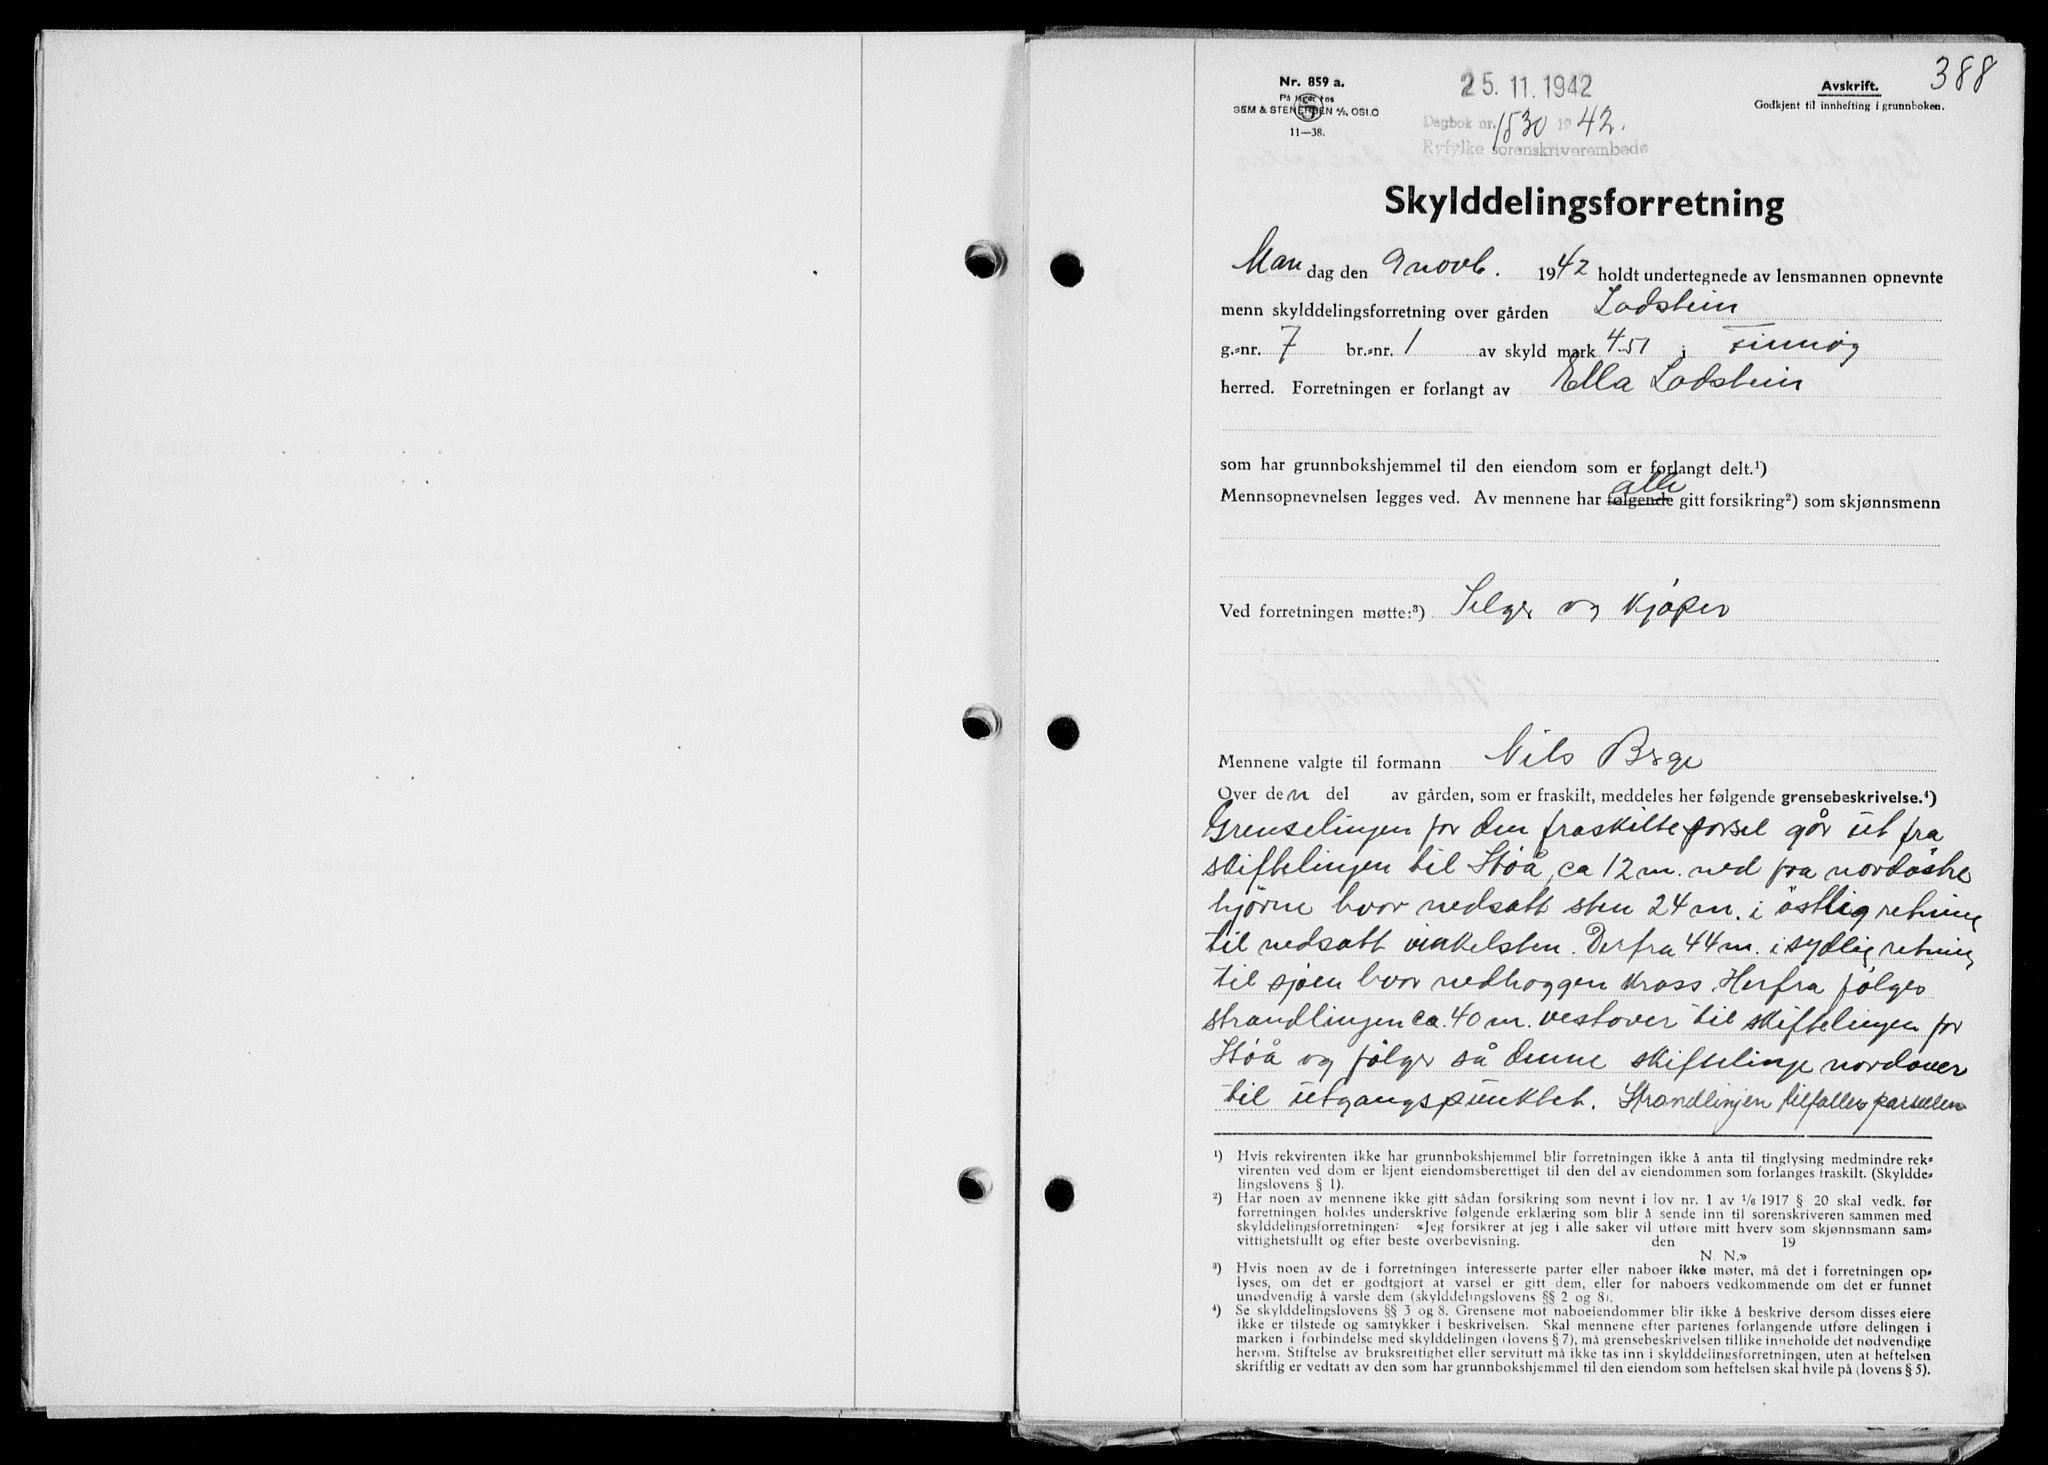 388
Nr. 859 a.
På lager hos
SEM & STENERSEN A/S, OSLO
11—38.
25. 11. 1942
Dagbok nr. 1530 19 42.
Ryfylke sorenskriverembede
Avskrift.
Godkjent til innhefting i grunnboken.
Skylddelingsforretning
Man dag den 9 novb. 1942 holdt undertegnede av lensmannen opnevnte
menn skylddelingsforretning over gården Ladstein
g.-nr. 7 br.-nr. 1 av skyld mark 4.51 i Finnøy
herred. Forretningen er forlangt av Ella Ladstein
som har grunnbokshjemmel til den eiendom som er forlangt delt.¹)
alle
Mennsopnevnelsen legges ved. Av mennene har følgende gitt forsikring²) som skjønnsmenn
Ved forretningen møtte:³) Selger og kjøper
Mennene valgte til formann Nils
Over den del av gården, som er fraskilt, meddeles her følgende grensebeskrivelse.⁴)
Grenselinjen for den fraskilte parsel går ut fra
skiftelinjen til Stöå, ca 12 m. ned fra nordöstre
hjørne hvor nedsatt sten 24 m. i östlig retning
til nedsatt vinkelsten. Derfra 44 m. i sydlig retning
til sjøen hvor nedhoggen kross. Herfra følges
strandlinjen ca. 40 m. vestover til skiftelinjen for
Stöå og følger så denne skiftelinje nordover
til utgangspunktet. Strandlinjen tilfaller parsellen
¹) Hvis rekvirenten ikke har grunnbokshjemmel blir forretningen ikke å anta til tinglysing medmindre rek-
virenten ved dom er kjent eiendomsberettiget til den del av eiendommen som forlanges fraskilt. (Skyldde-
lingslovens § 1).
²) Har noen av mennene ikke gitt sådan forsikring som nevnt i lov nr. 1 av 1/6 1917 § 20 skal vedk. før
forretningen holdes underskrive følgende erklæring som blir å sende inn til sorenskriveren sammen med
skylddelingsforretningen: «Jeg forsikrer at jeg i alle saker vil utføre mitt hverv som skjønnsmann sam-
vittighetsfullt og efter beste overbevisning. den 19
N. N.»
³) Hvis noen av de i forretningen interesserte parter eller naboer ikke møter, må det i forretningen op-
lyses, om det er godtgjort at varsel er gitt dem, eller for naboers vedkommende om det er funnet
unødvendig å varsle dem (skylddelingslovens §§ 2 og 8).
⁴) Se skylddelingslovens §§ 3 og 8. Grensene mot naboeiendommer blir ikke å beskrive dersom disses eiere
ikke er tilstede og samtykker i beskrivelsen. Skal mennene efter partenes forlangende utføre delingen i
marken i forbindelse med skylddelingen (lovens § 7), må grensebeskrivelsen tillike inneholde det nødvendige
herom. Stiftelse av bruksrettighet eller servitutt må ikke tas inn i skylddelingsforretningen, uten at heftelsen
skriftlig er vedtatt av den som har grunnbokshjemmel til den eiendom som heftelsen skal hvile på (lovens § 5).